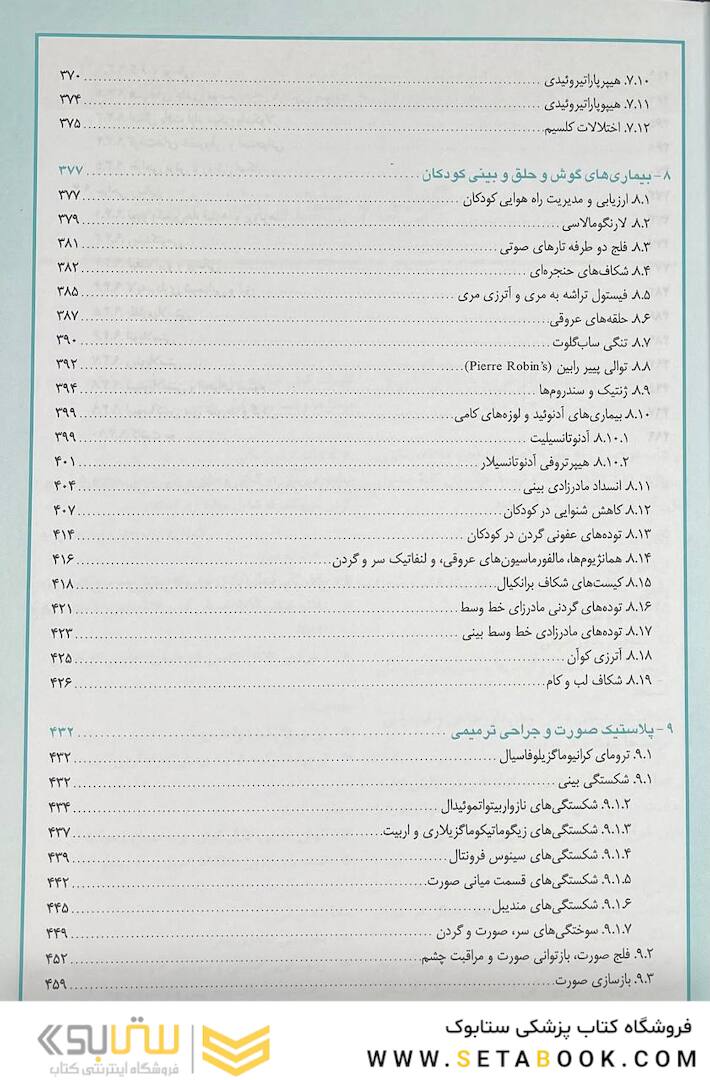 ۷.۱۰. هیپرپاراتیروئیدی ........ ۳۷۰
۷.۱۱. هیپوپاراتیروئیدی ........ ۳۷۴
۷.۱۲. اختلالات کلسیم ........ ۳۷۵
۸- بیماری‌های گوش و حلق و بینی کودکان ........ ۳۷۷
۸.۱. ارزیابی و مدیریت راه هوایی کودکان ........ ۳۷۷
۸.۲. لارنگومالاسی ........ ۳۷۹
۸.۳. فلج دو طرفه تارهای صوتی ........ ۳۸۱
۸.۴. شکاف‌های حنجره‌ای ........ ۳۸۲
۸.۵. فیستول تراشه به مری و آترزی مری ........ ۳۸۵
۸.۶. حلقه‌های عروقی ........ ۳۸۷
۸.۷. تنگی ساب‌گلوت ........ ۳۹۰
۸.۸. توالی پییر رابین (Pierre Robin’s) ........ ۳۹۲
۸.۹. ژنتیک و سندروم‌ها ........ ۳۹۴
۸.۱۰. بیماری‌های آدنوئید و لوزه‌های کامی ........ ۳۹۹
۸.۱۰.۱. آدنوتانسیلیت ........ ۳۹۹
۸.۱۰.۲. هیپرتروفی آدنوتانسیلار ........ ۴۰۱
۸.۱۱. انسداد مادرزادی بینی ........ ۴۰۴
۸.۱۲. کاهش شنوایی در کودکان ........ ۴۰۷
۸.۱۳. توده‌های عفونی گردن در کودکان ........ ۴۱۴
۸.۱۴. همانژیوم‌ها، مالفورماسیون‌های عروقی، و لنفاتیک سر و گردن ........ ۴۱۶
۸.۱۵. کیست‌های شکاف برانکیال ........ ۴۱۸
۸.۱۶. توده‌های گردنی مادرزای خط وسط ........ ۴۲۱
۸.۱۷. توده‌های مادرزادی خط وسط بینی ........ ۴۲۳
۸.۱۸. آترزی کوآن ........ ۴۲۵
۸.۱۹. شکاف لب و کام ........ ۴۲۶
۹- پلاستیک صورت و جراحی ترمیمی ........ ۴۳۲
۹.۱. ترومای کرانیوماگزیلوفاسیال ........ ۴۳۲
۹.۱. شکستگی بینی ........ ۴۳۲
۹.۱.۲. شکستگی‌های نازواربیتواتموئیدال ........ ۴۳۴
۹.۱.۳. شکستگی‌های زیگوماتیکوماگزیلاری و اربیت ........ ۴۳۷
۹.۱.۴. شکستگی‌های سینوس فرونتال ........ ۴۳۹
۹.۱.۵. شکستگی‌های قسمت میانی صورت ........ ۴۴۲
۹.۱.۶. شکستگی‌های مندیبل ........ ۴۴۵
۹.۱.۷. سوختگی‌های سر، صورت و گردن ........ ۴۴۹
۹.۲. فلج صورت، بازتوانی صورت و مراقبت چشم ........ ۴۵۲
۹.۳. بازسازی صورت ........ ۴۵۹
فروشگاه کتاب پزشکی ستابوک
WWW.SETABOOK.COM
ستابوک
فروشگاه اینترنتی کتاب